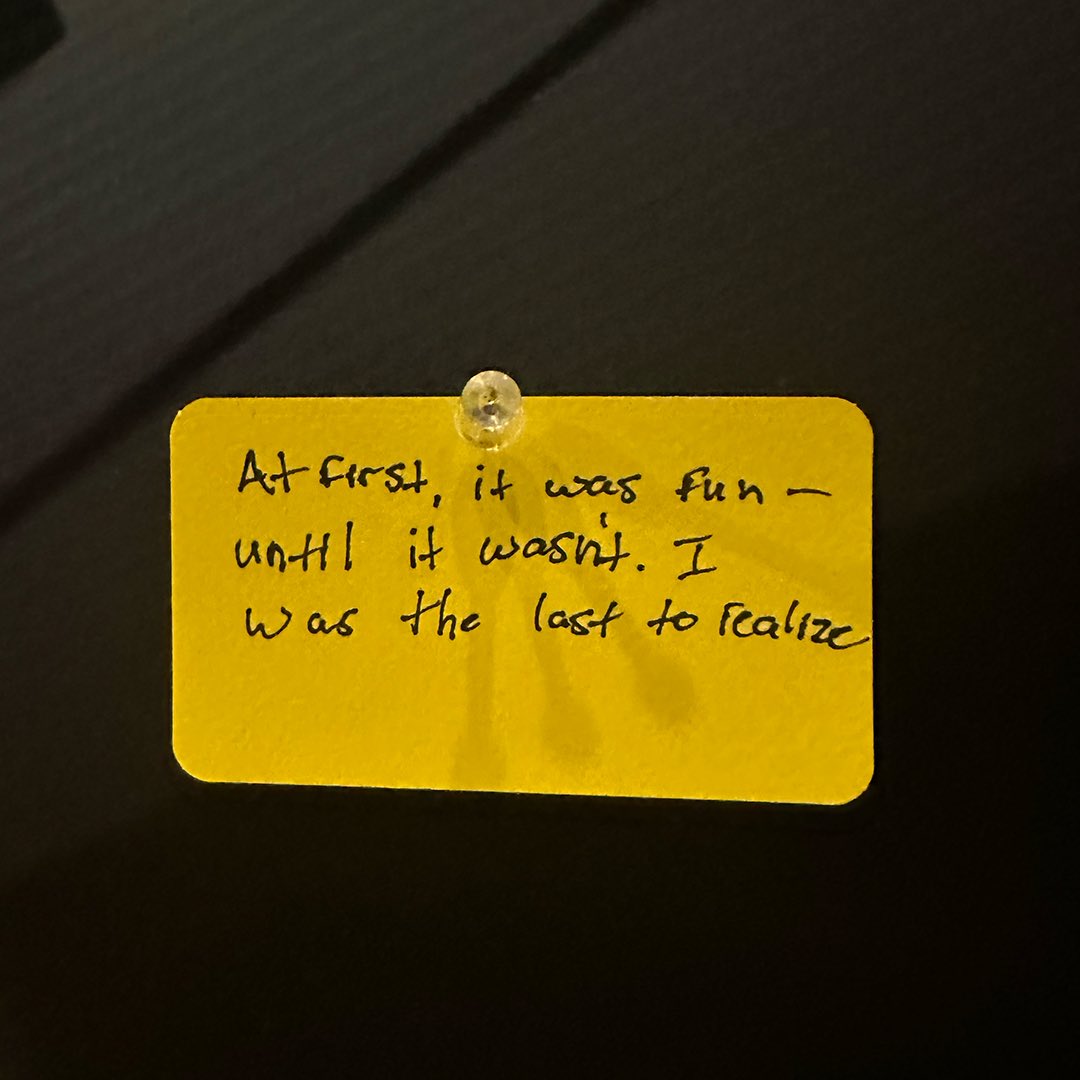 At first, it was fun —
until it wasn't. I
was the last to realize